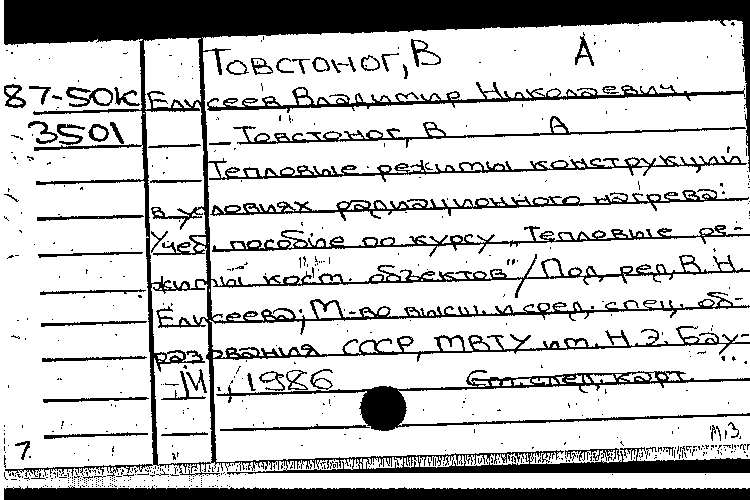 Товстоног, В А
87-50К Елисеев, Владимир Николаевич,
3501 Товстоног, В А
Тепловые режимы конструкций
в условиях радиационного нагрева:
Учеб. пособие по курсу „Тепловые ре-
жимы косм. объектов" / Под ред. В. Н.
Елисеева; М-во высш. и сред. спец. об-
разования СССР, МВТУ им. Н. Э. Бау-
М., 1986 См. след. карт. ...
7. М.З.